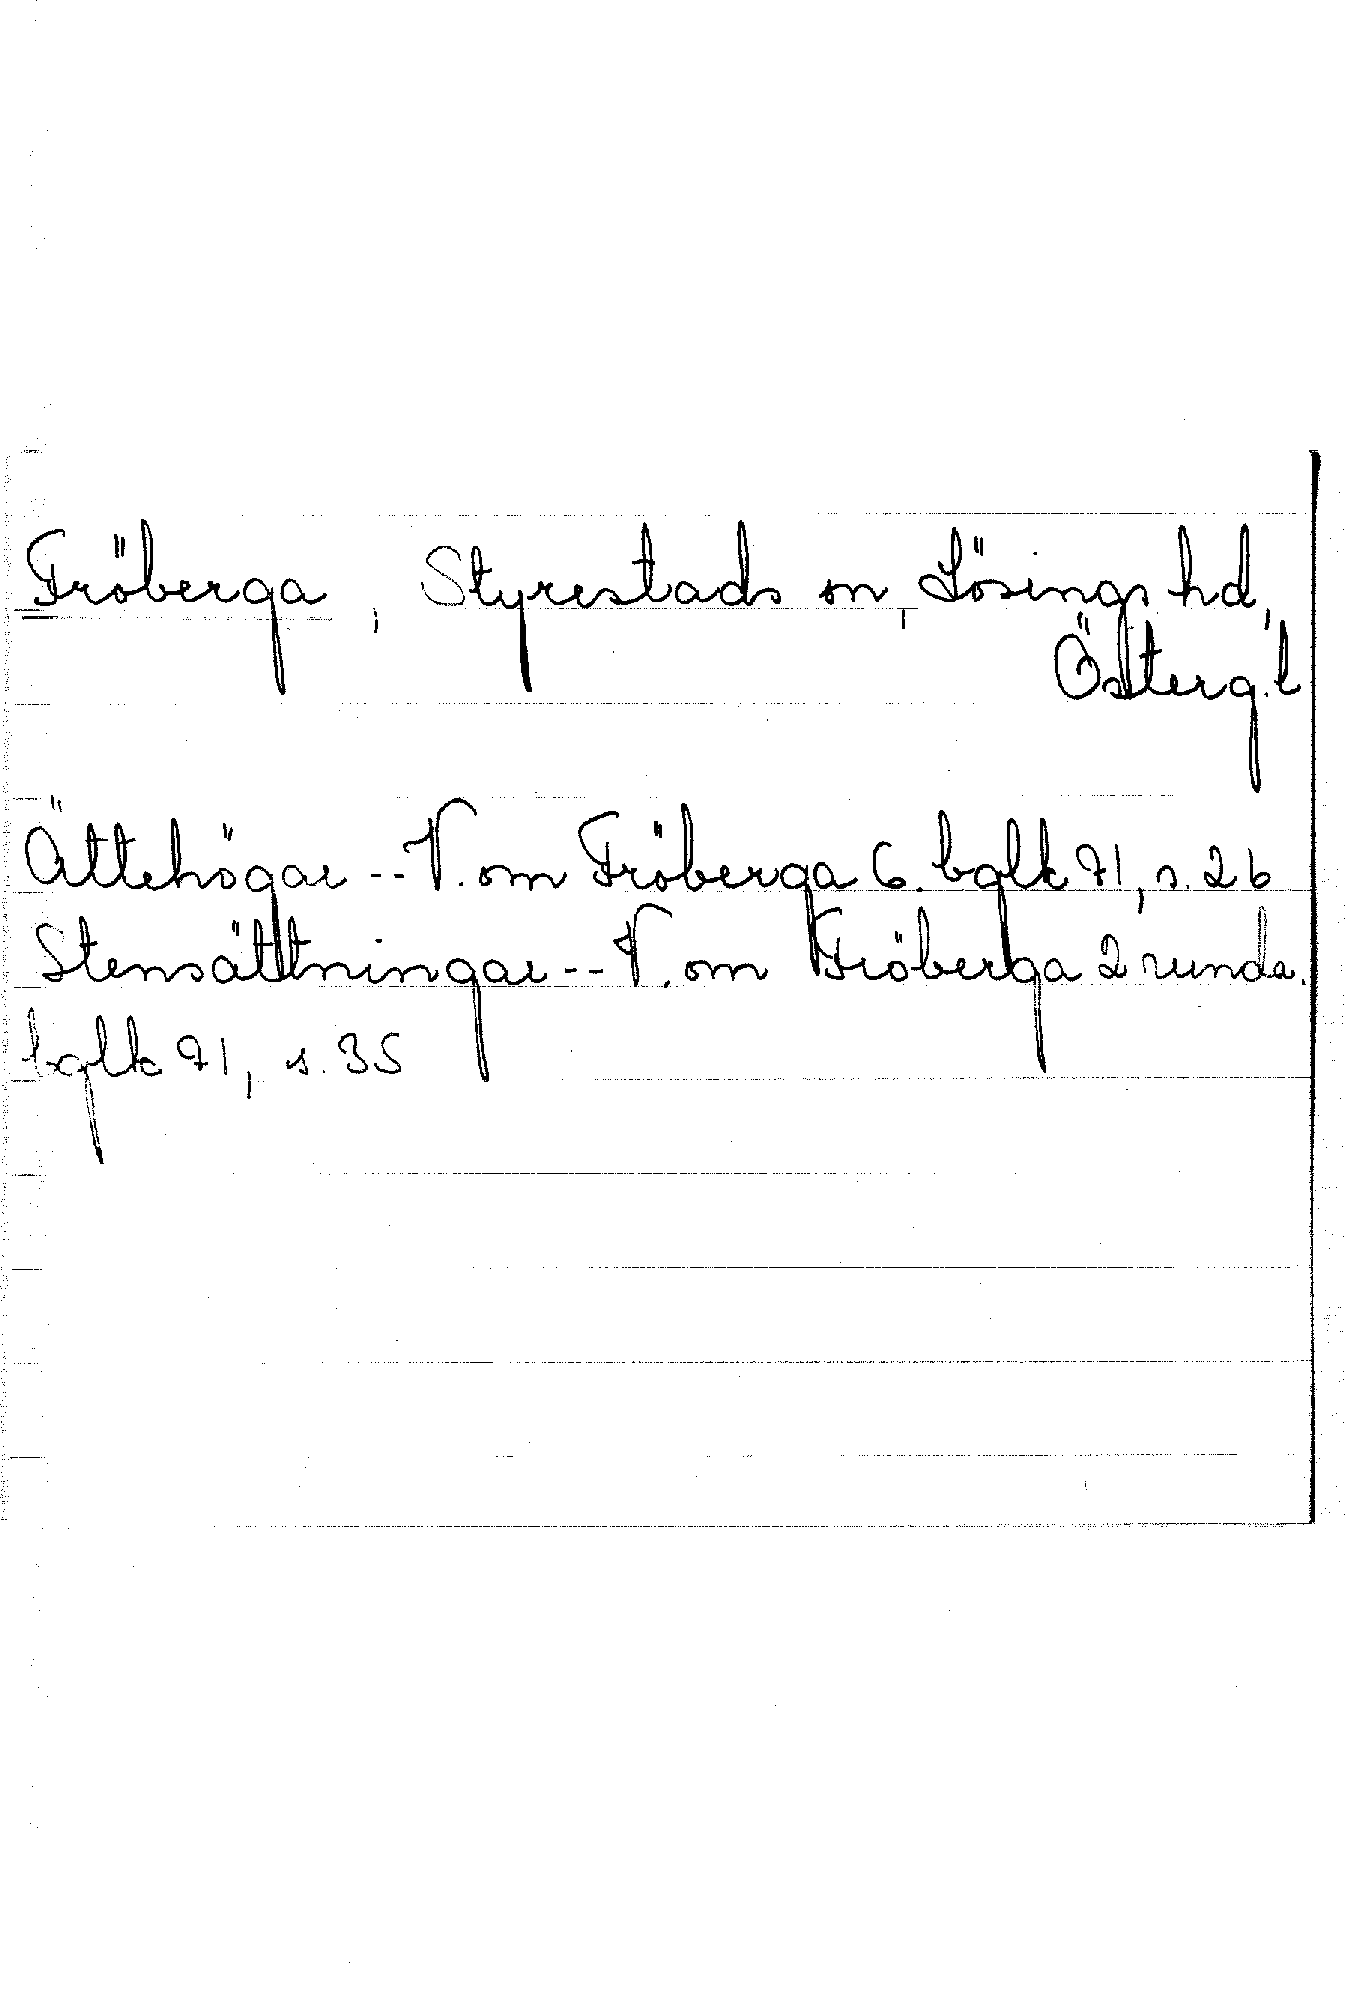 Fröberga, Styrestads sn, Lösings hd,
Österg.l
Ättehögar -- V. om Fröberga 6. bglk 71, s. 26
Stensättningar -- V. om Fröberga 2 runda.
bglk 71, s. 35